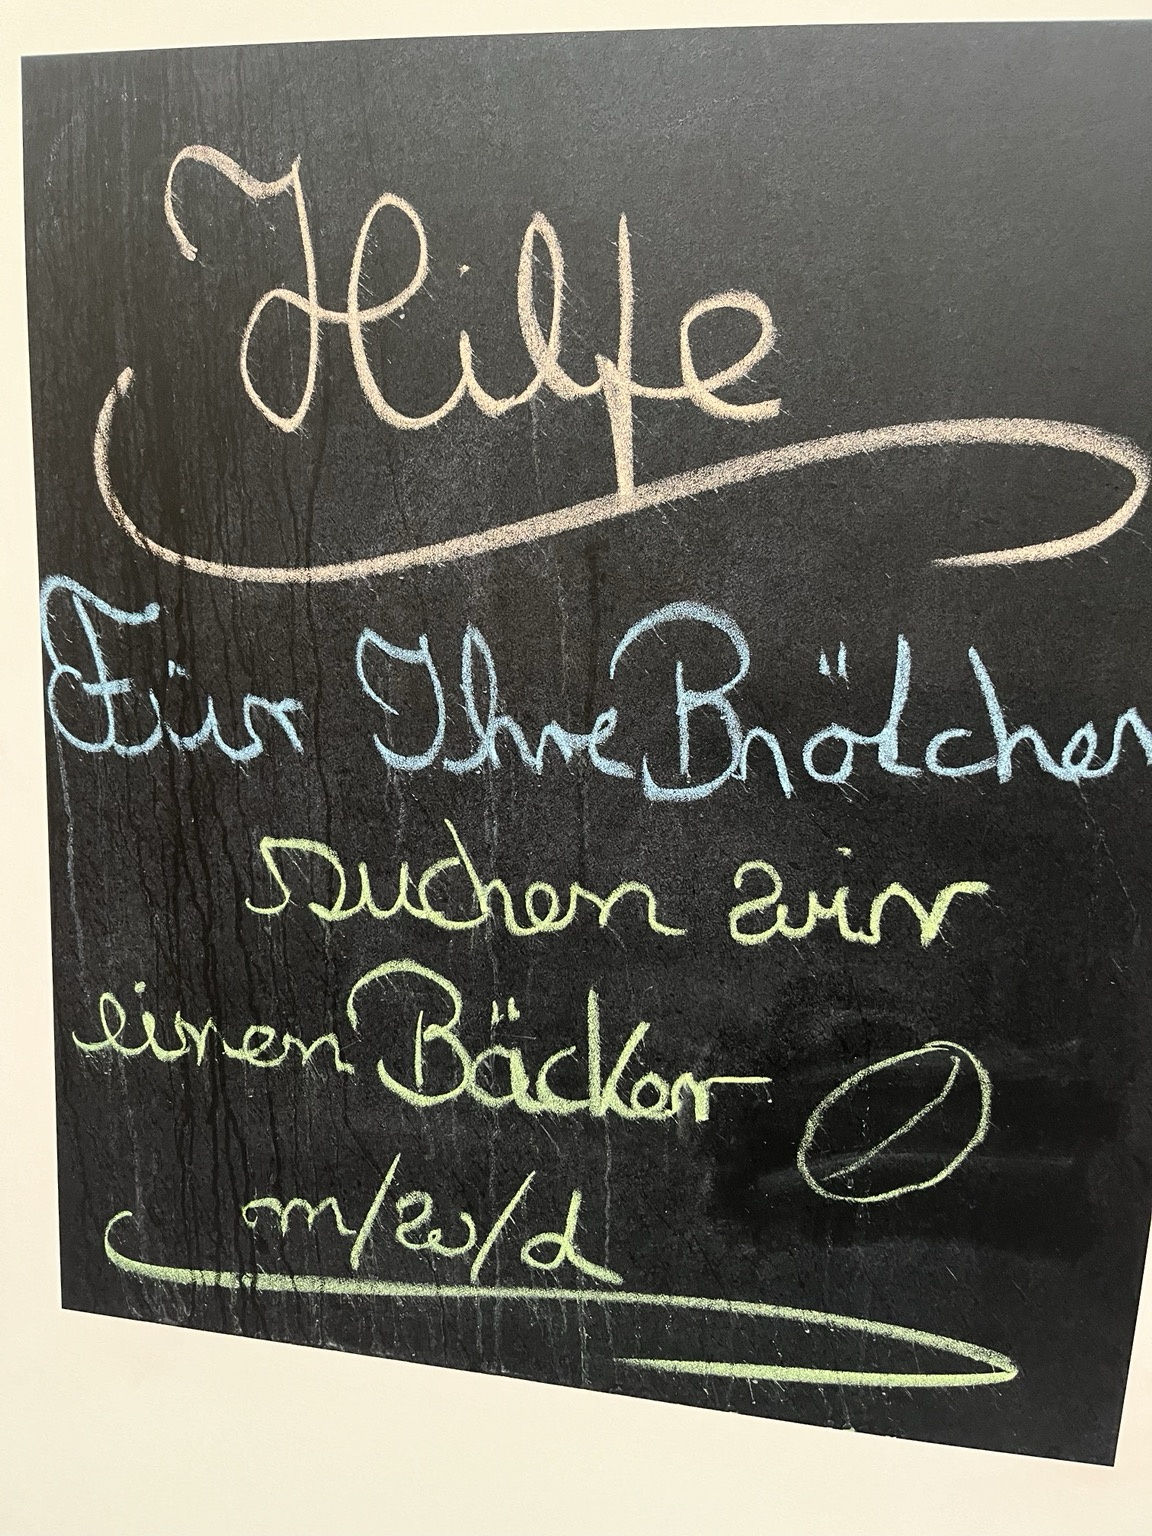 Hilfe
Für Ihre Brötchen
suchen wir
einen Bäcker
m/w/d